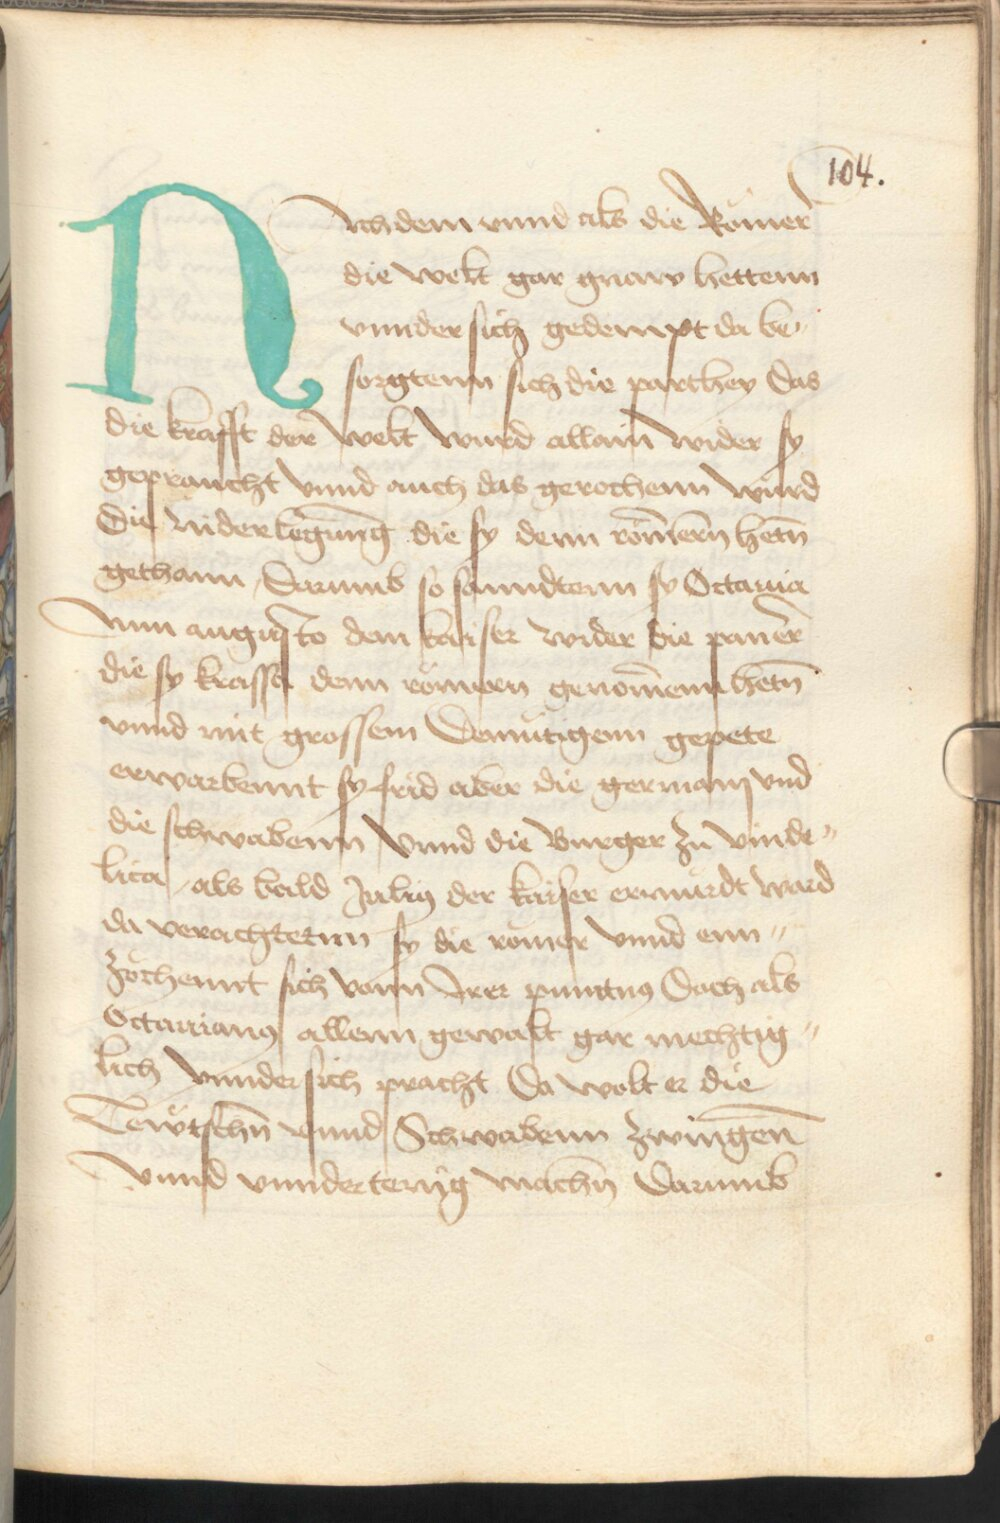 104.
Nachdem vnnd als die Römer
die welt gar gnaw hettenn
vnnder sich gedempt da be„
sorgtenn sich die parthey das
die krafft der welt wurd allain wider sy
gepraucht vnnd auch das gerochenn würd
Die niderlegung die sy denn römern hetn̄
gethann / Darumb so sanndtenn sy Octauia
num augusto dem kaiser wider die paner
die sy krasso denn römern genom̄enn hetn̄
vnnd mit grossem Demütigenn gepete
erwarbennt sy frid aber die germani vnd
die schwabenn vnnd die Burger zu vinde„
lica / als bald Julius der kaiser ermürdt ward
da verachtetenn sy die römer vnnd enn„
zochennt sich vonn Irer puntnus Doch als
Octauianus allenn gewalt gar mechtig„
lich vnnder sich pracht Da wolt er die
Tewtschn̄ vnnd Schwabenn zwingen̄
vnnd vnndertenig machn̄ Darumb